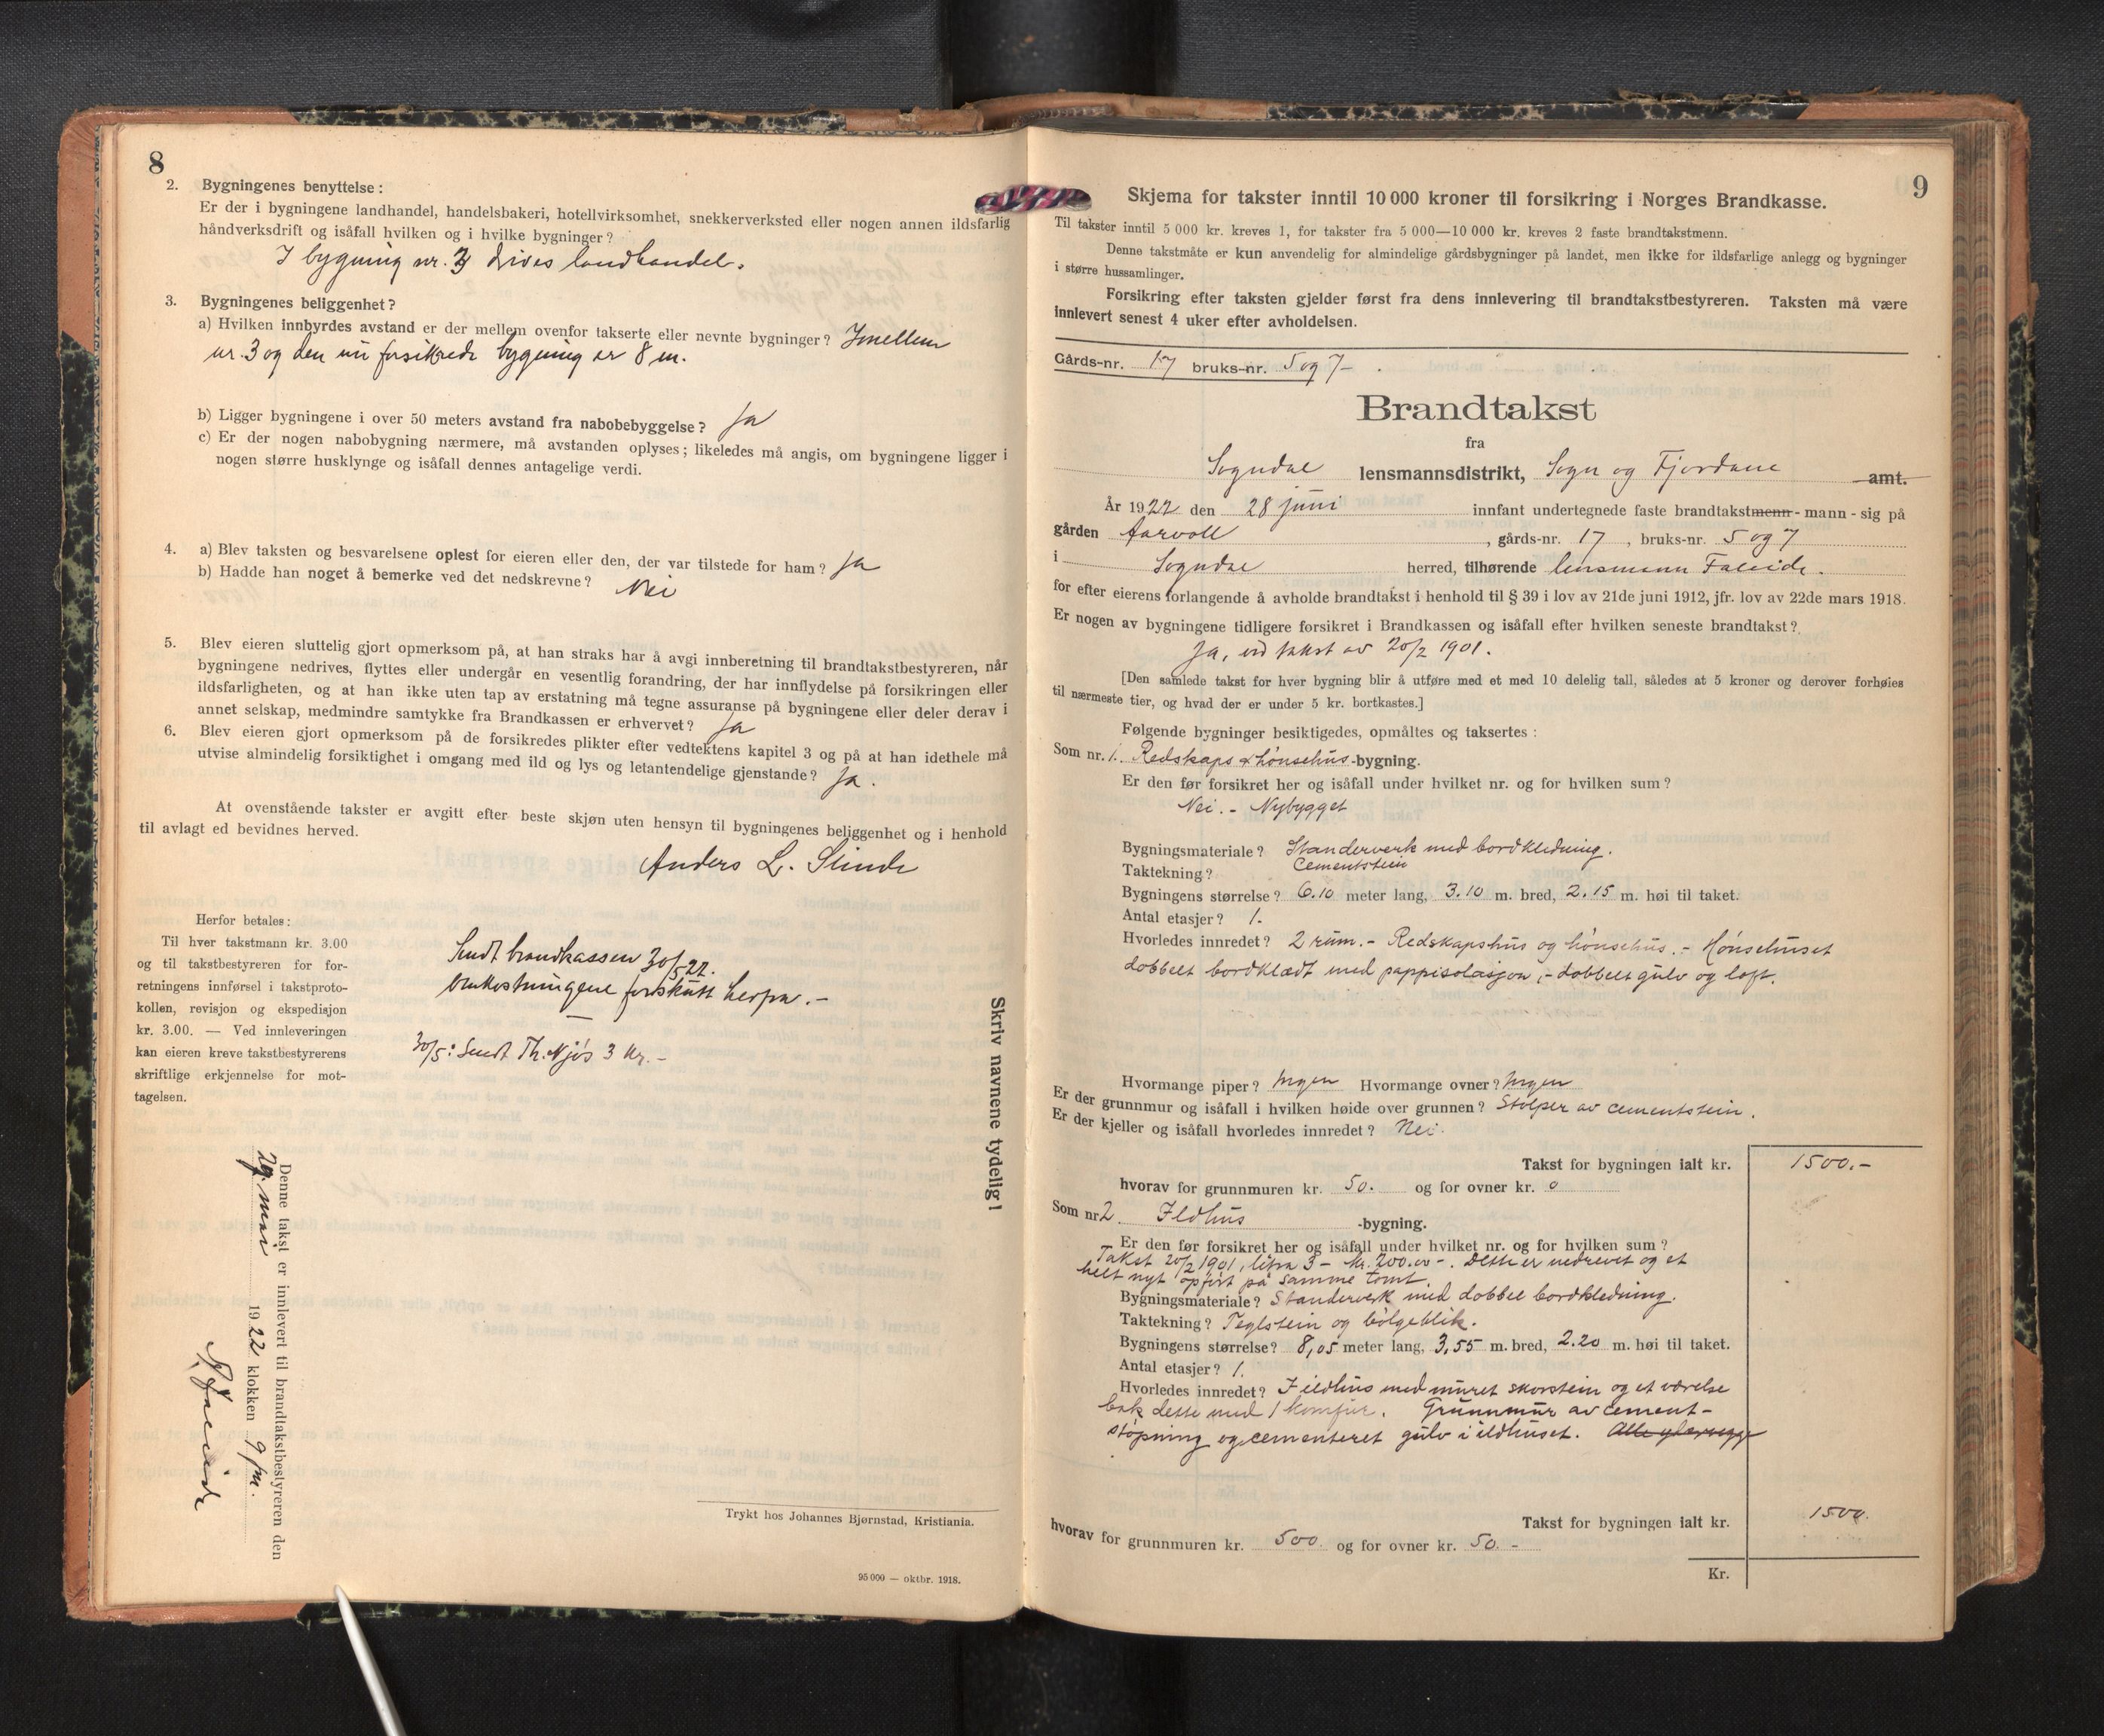 8
2. Bygningenes benyttelse:
Er der i bygningene landhandel, handelsbakeri, hotellvirksomhet, snekkerverksted eller nogen annen ildsfarlig
håndverksdrift og isåfall hvilken og i hvilke bygninger?
I bygning nr. 3 drives landhandel.
3. Bygningenes beliggenhet?
a) Hvilken innbyrdes avstand er der mellem ovenfor takserte eller nevnte bygninger? Imellem
nr. 3 og den nu forsikrede bygning er 8 m.
b) Ligger bygningene i over 50 meters avstand fra nabobebyggelse? Ja
c) Er der nogen nabobygning nærmere, må avstanden oplyses; likeledes må angis, om bygningene ligger i
nogen større husklynge og isåfall dennes antagelige verdi.
4. a) Blev taksten og besvarelsene oplest for eieren eller den, der var tilstede for ham? Ja
b) Hadde han noget å bemerke ved det nedskrevne? Nei
5. Blev eieren sluttelig gjort opmerksom på, at han straks har å avgi innberetning til brandtakstbestyreren, når
bygningene nedrives, flyttes eller undergår en vesentlig forandring, der har innflydelse på forsikringen eller
ildsfarligheten, og at han ikke uten tap av erstatning må tegne assuranse på bygningene eller deler derav i
annet selskap, medmindre samtykke fra Brandkassen er erhvervet? Ja
6. Blev eieren gjort opmerksom på de forsikredes plikter efter vedtektens kapitel 3 og på at han idethele må
utvise almindelig forsiktighet i omgang med ild og lys og letantendelige gjenstande? Ja.
At ovenstående takster er avgitt efter beste skjøn uten hensyn til bygningenes beliggenhet og i henhold
til avlagt ed bevidnes herved.
Anders L. Slinde
Herfor betales:
Til hver takstmann kr. 3.00
og til takstbestyreren for for-
retningens innførsel i takstproto-
kollen, revisjon og ekspedisjon
kr. 3.00. — Ved innleveringen
kan eieren kreve takstbestyrerens
skriftlige erkjennelse for mot-
tagelsen.
Sendt brandkassen 30/5 22.
Omkostningene forskutt herfra.-
30/5: Sendt Th. Njøs 3 kr.-
Skriv navnene tydelig!
Denne takst er innlevert til brandtakstbestyreren den
29 mai 1922 klokken 9 fm.
Faleide
Trykt hos Johannes Bjørnstad, Kristiania.
95 000 — oktbr. 1918.
9
Skjema for takster inntil 10 000 kroner til forsikring i Norges Brandkasse.
Til takster inntil 5 000 kr. kreves 1, for takster fra 5 000—10 000 kr. kreves 2 faste brandtakstmenn.
Denne takstmåte er kun anvendelig for almindelige gårdsbygninger på landet, men ikke for ildsfarlige anlegg og bygninger
i større hussamlinger.
Forsikring efter taksten gjelder først fra dens innlevering til brandtakstbestyreren. Taksten må være
innlevert senest 4 uker efter avholdelsen.
Gårds-nr. 17 bruks-nr. 5 og 7
Brandtakst
fra
Sogndal lensmannsdistrikt, Sogn og Fjordane amt.
År 1922 den 28 juni innfant undertegnede faste brandtakstmenn - mann - sig på
gården Aarvoll, gårds-nr. 17, bruks-nr. 5 og 7
i Sogndal herred, tilhørende lensmann Faleide.
for efter eierens forlangende å avholde brandtakst i henhold til § 39 i lov av 21de juni 1912, jfr. lov av 22de mars 1918.
Er nogen av bygningene tidligere forsikret i Brandkassen og isåfall efter hvilken seneste brandtakst?
Ja, ved takst av 20/2 1901.
[Den samlede takst for hver bygning blir å utføre med et med 10 delelig tall, således at 5 kroner og derover forhøies
til nærmeste tier, og hvad der er under 5 kr. bortkastes.]
Følgende bygninger besiktigedes, opmåltes og taksertes:
Som nr. 1. Redskaps & hønsehus-bygning.
Er den før forsikret her og isåfall under hvilket nr. og for hvilken sum?
Nei. - Nybygget
Bygningsmateriale? Standerverk med bordkledning.
Taktekning? Cementstein
Bygningens størrelse? 6.10 meter lang, 3.10 m. bred, 2.15 m. høi til taket.
Antal etasjer? 1.
Hvorledes innredet? 2 rum. - Redskapshus og hønsehus. - Hønsehuset
dobbelt bordklædt med pappisolasjon, - dobbelt gulv og loft.
Hvormange piper? Ingen Hvormange ovner? Ingen
Er der grunnmur og isåfall i hvilken høide over grunnen? Stolper av cementstein.
Er der kjeller og isåfall hvorledes innredet? Nei.
Takst for bygningen ialt kr. 1500.-
hvorav for grunnmuren kr. 50. og for ovner kr. 0
Som nr. 2 Ildhus -bygning.
Er den før forsikret her og isåfall under hvilket nr. og for hvilken sum?
Takst 20/2 1901, litra 3 - kr. 200.00 -. Dette er nedrevet og et
helt nyt opført på samme tomt.
Bygningsmateriale? Standerverk med dobbel bordkledning.
Taktekning? Teglstein og bølgeblik.
Bygningens størrelse? 8,05 meter lang, 3,55 m. bred, 2.20 m. høi til taket.
Antal etasjer? 1.
Hvorledes innredet? Ildhus med muret skorstein og et værelse
bak dette med 1 komfur. Grunnmur av cement-
støpning og cementeret gulv i ildhuset.
Takst for bygningen ialt kr. 1500.
hvorav for grunnmuren kr. 500. og for ovner kr. 50.-
Kr.